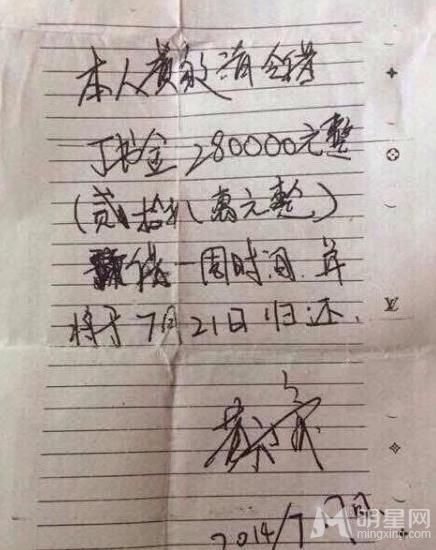 本人黄毅清今借
280000元整
(贰拾捌萬元整)
一周时间
将于7月21日归还.
2014/7
明星网
mingxing.com